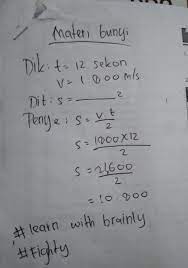 Materi bunyi
Dik: t = 12 sekon
v = 1.800 m/s
Dit: s = ______ ?
Penye: s = v.t/2
s = 1800x12/2
s = 21.600/2
= 10.800
#learn with brainly
#Fighty